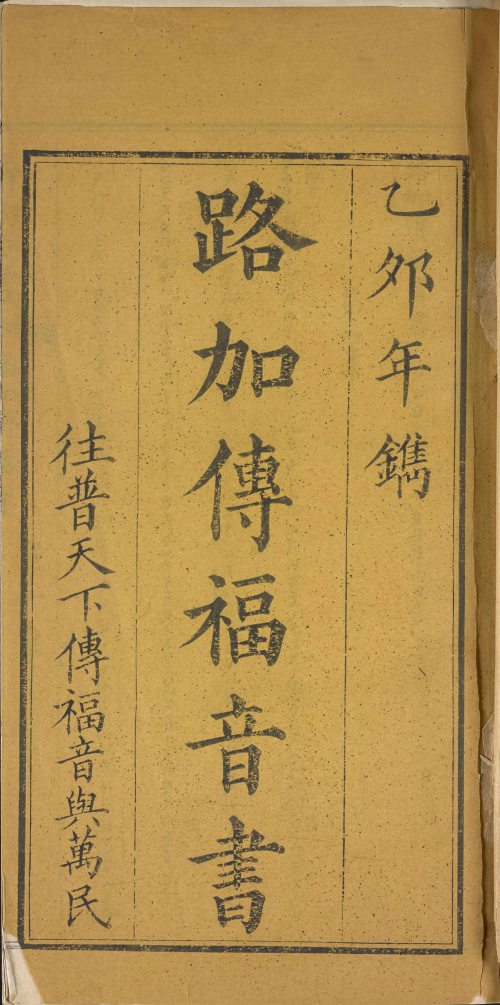 乙夘年鐫
路加傳福音書
徃普天下傳福音與萬民